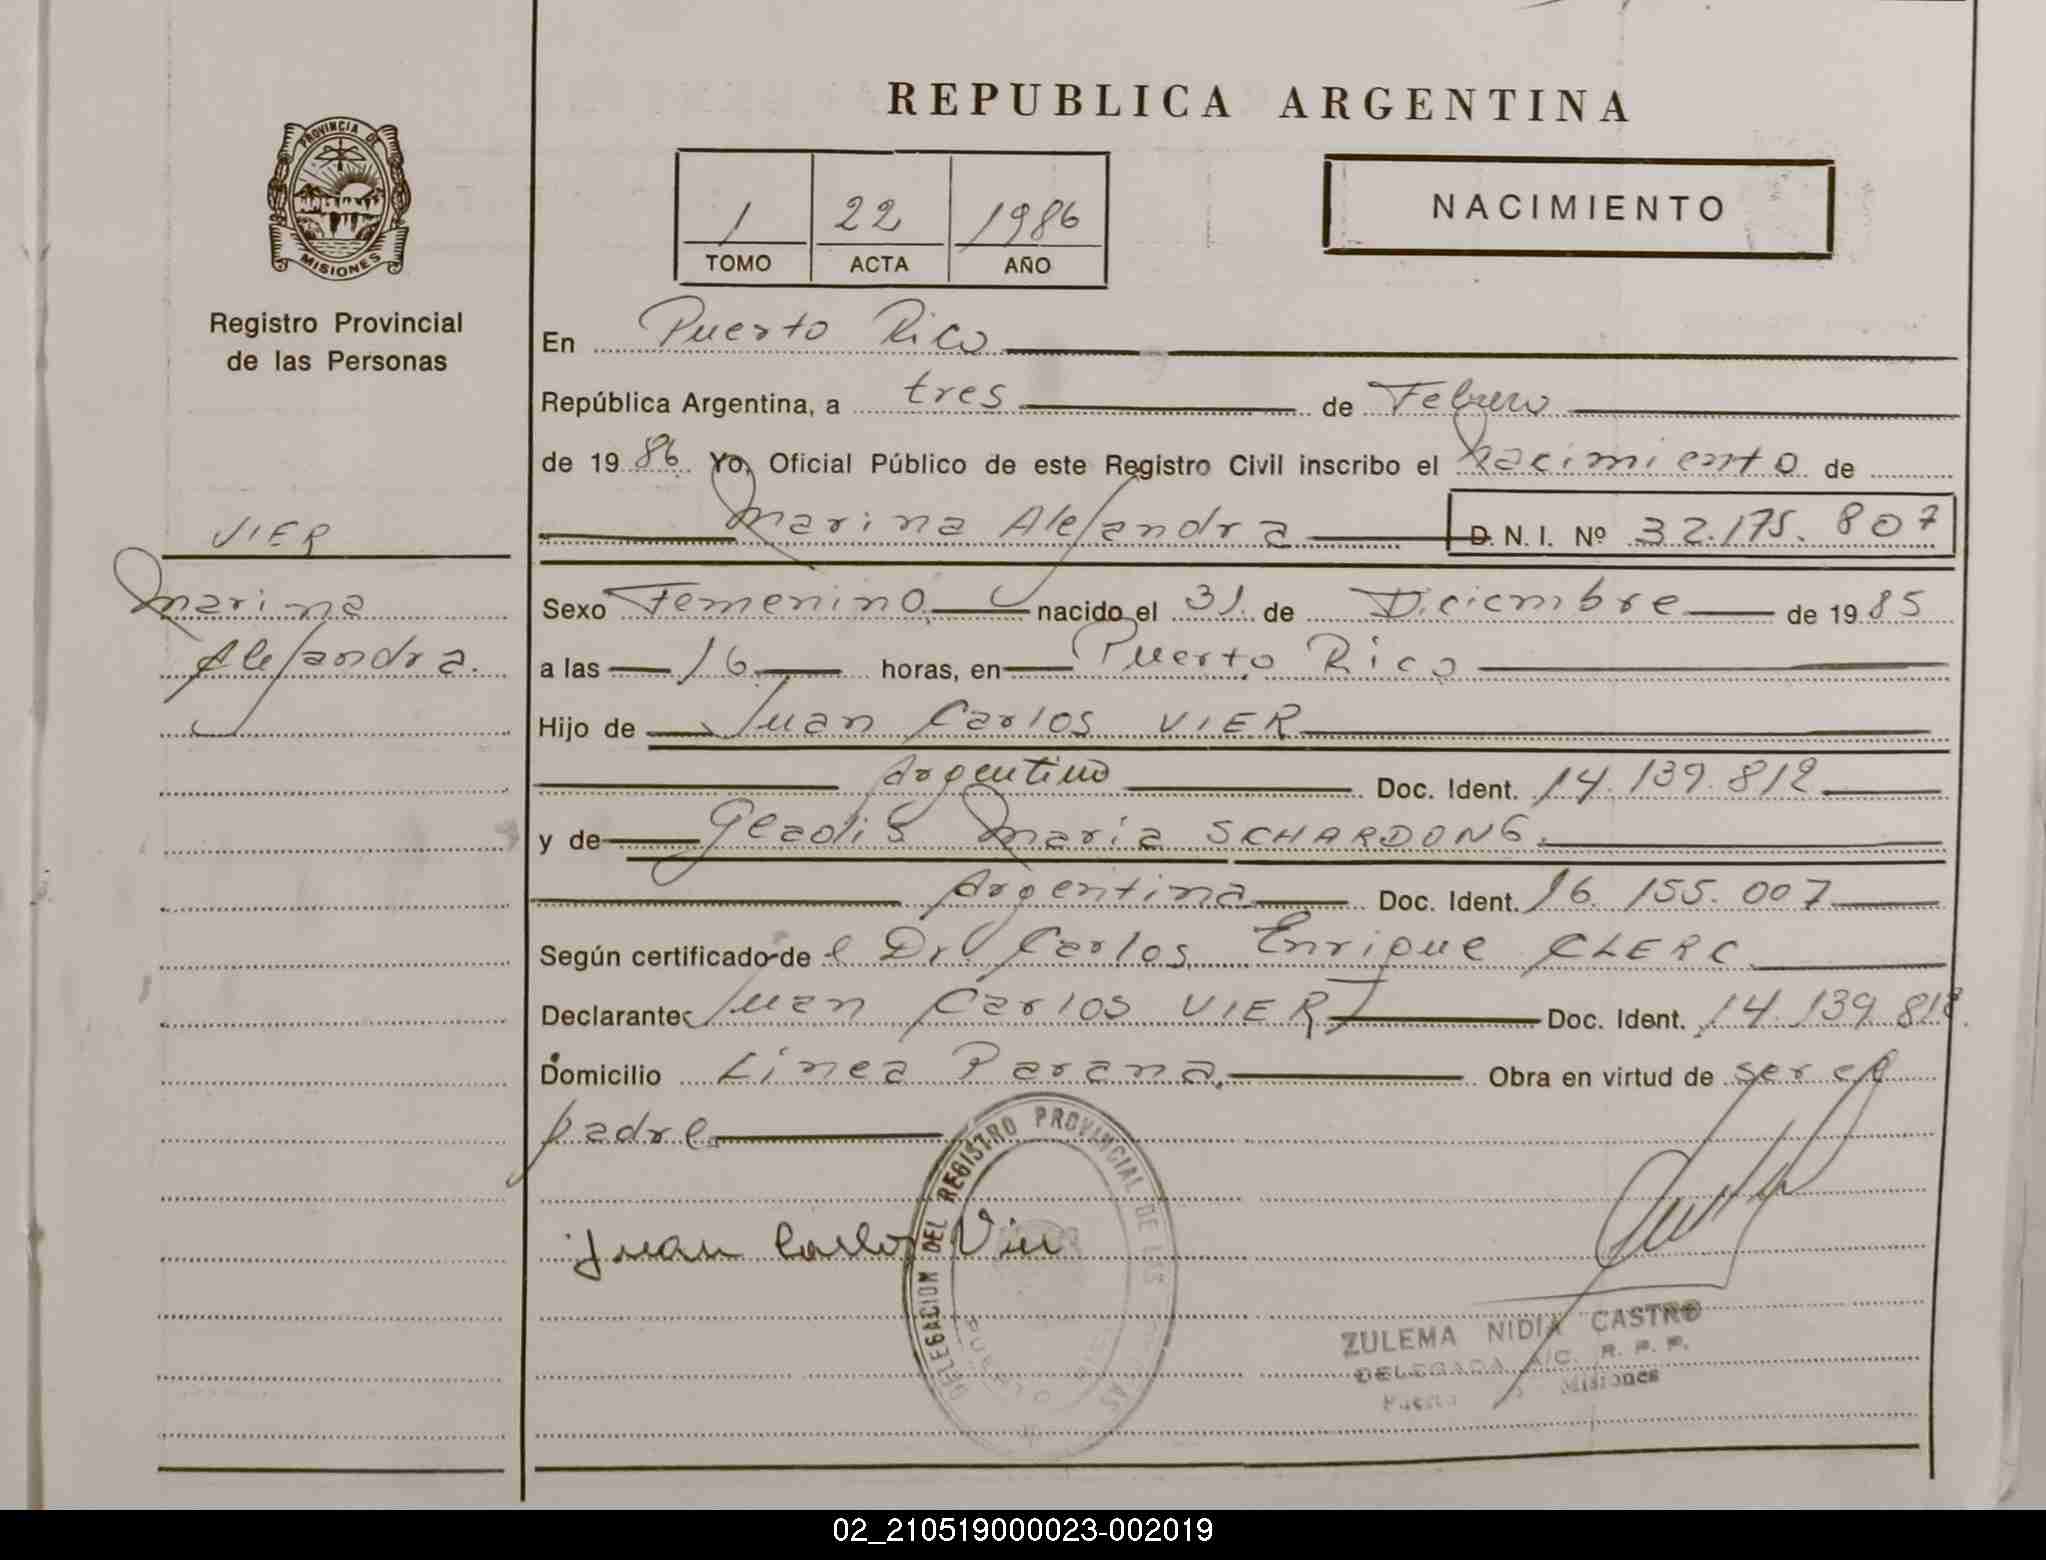 REPUBLICA ARGENTINA
PROVINCIA DE
MISIONES
Registro Provincial
de las Personas
1 22 1986
TOMO ACTA AÑO
NACIMIENTO
En Puerto Rico
República Argentina, a tres de Febrero
de 19 86 Yo, Oficial Público de este Registro Civil inscribo el Nacimiento de
Marina Alejandra D. N. I. Nº 32.175.807
VIER
Marina
Alejandra.
Sexo Femenino nacido el 31 de Diciembre de 19 85
a las 16 horas, en Puerto Rico
Hijo de Juan Carlos VIER
Argentino Doc. Ident. 14.139.812
y de Gladis Maria SCHARDONG
Argentina Doc. Ident. 16.155.007
Según certificado de l Dr Carlos Enrique CLERC
Declarante Juan Carlos VIER Doc. Ident. 14.139.812
Domicilio Línea Parana Obra en virtud de ser el
padre
Juan Carlos Vier
DELEGACION DEL REGISTRO PROVINCIAL DE LAS
ZULEMA NIDIA CASTRO
DELEGADA A/C. R. P. P.
Misiones
02_210519000023-002019